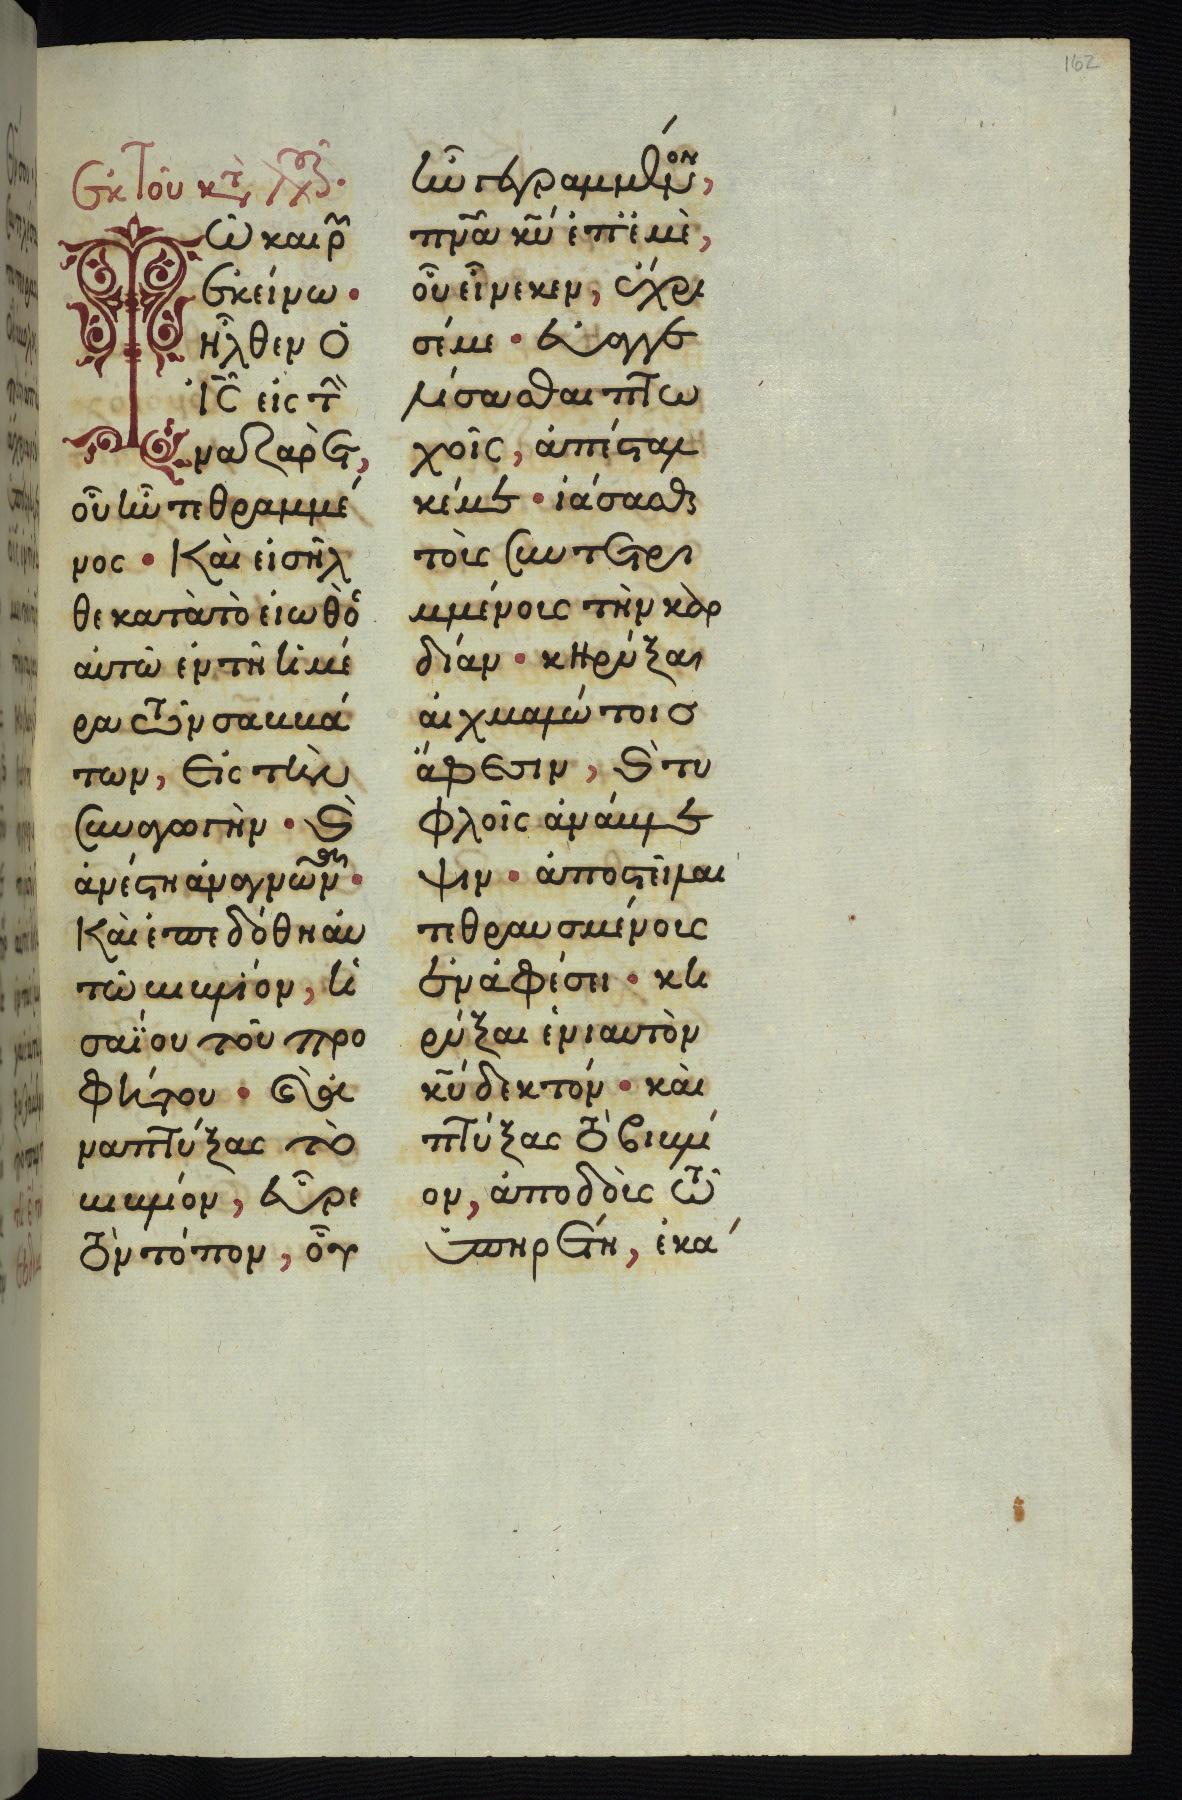 162
Ἐκ τοῦ κατ
Τῶ καιρ
ἐκείνω ·
ἦλθεν ὁ
ἰς εἰς τ
ναζαρὲτ,
οὗ ἦν τεθραμμέ
νος · Καὶ εἰσῆλ
θε κατὰ τὸ εἰωθὸς
αὐτῶ ἐν τῆ ἡμέ
ρα τῶν σαββά
των, εἰς τὴν
συναγωγὴν · καὶ
ἀνέστη ἀναγνῶναι ·
Καὶ ἐπεδόθη αὐ
τῶ βιβλίον, ἡ
σαΐου τοῦ προ
φήτου · καὶ ἀ
ναπτύξας τὸ
βιβλίον, εὗρε
τὸν τόπον, οὗ
ἦν γεγραμμένον,
πνᾶ κῦ ἐπ ἐμὲ,
οὗ εἵνεκεν, ἔχρι
σέ με · εὐαγγε
λίσασθαι πτω
χοῖς, ἀπέσταλ
κέ με · ἰάσασθαι
τοὺς συντετρι
μμένους τὴν καρ
δίαν · κηρύξαι
αἰχμαλώτοις
ἄφεσιν, καὶ τυ
φλοῖς ἀνάβλε
ψιν · ἀποστεῖλαι
τεθραυσμένους
ἐν ἀφέσει · κη
ρύξαι ἐνιαυτὸν
κῦ δεκτόν · καὶ
πτύξας τὸ βιβλί
ον, ἀποδοὺς τῶ
ὑπηρέτη, ἐκά